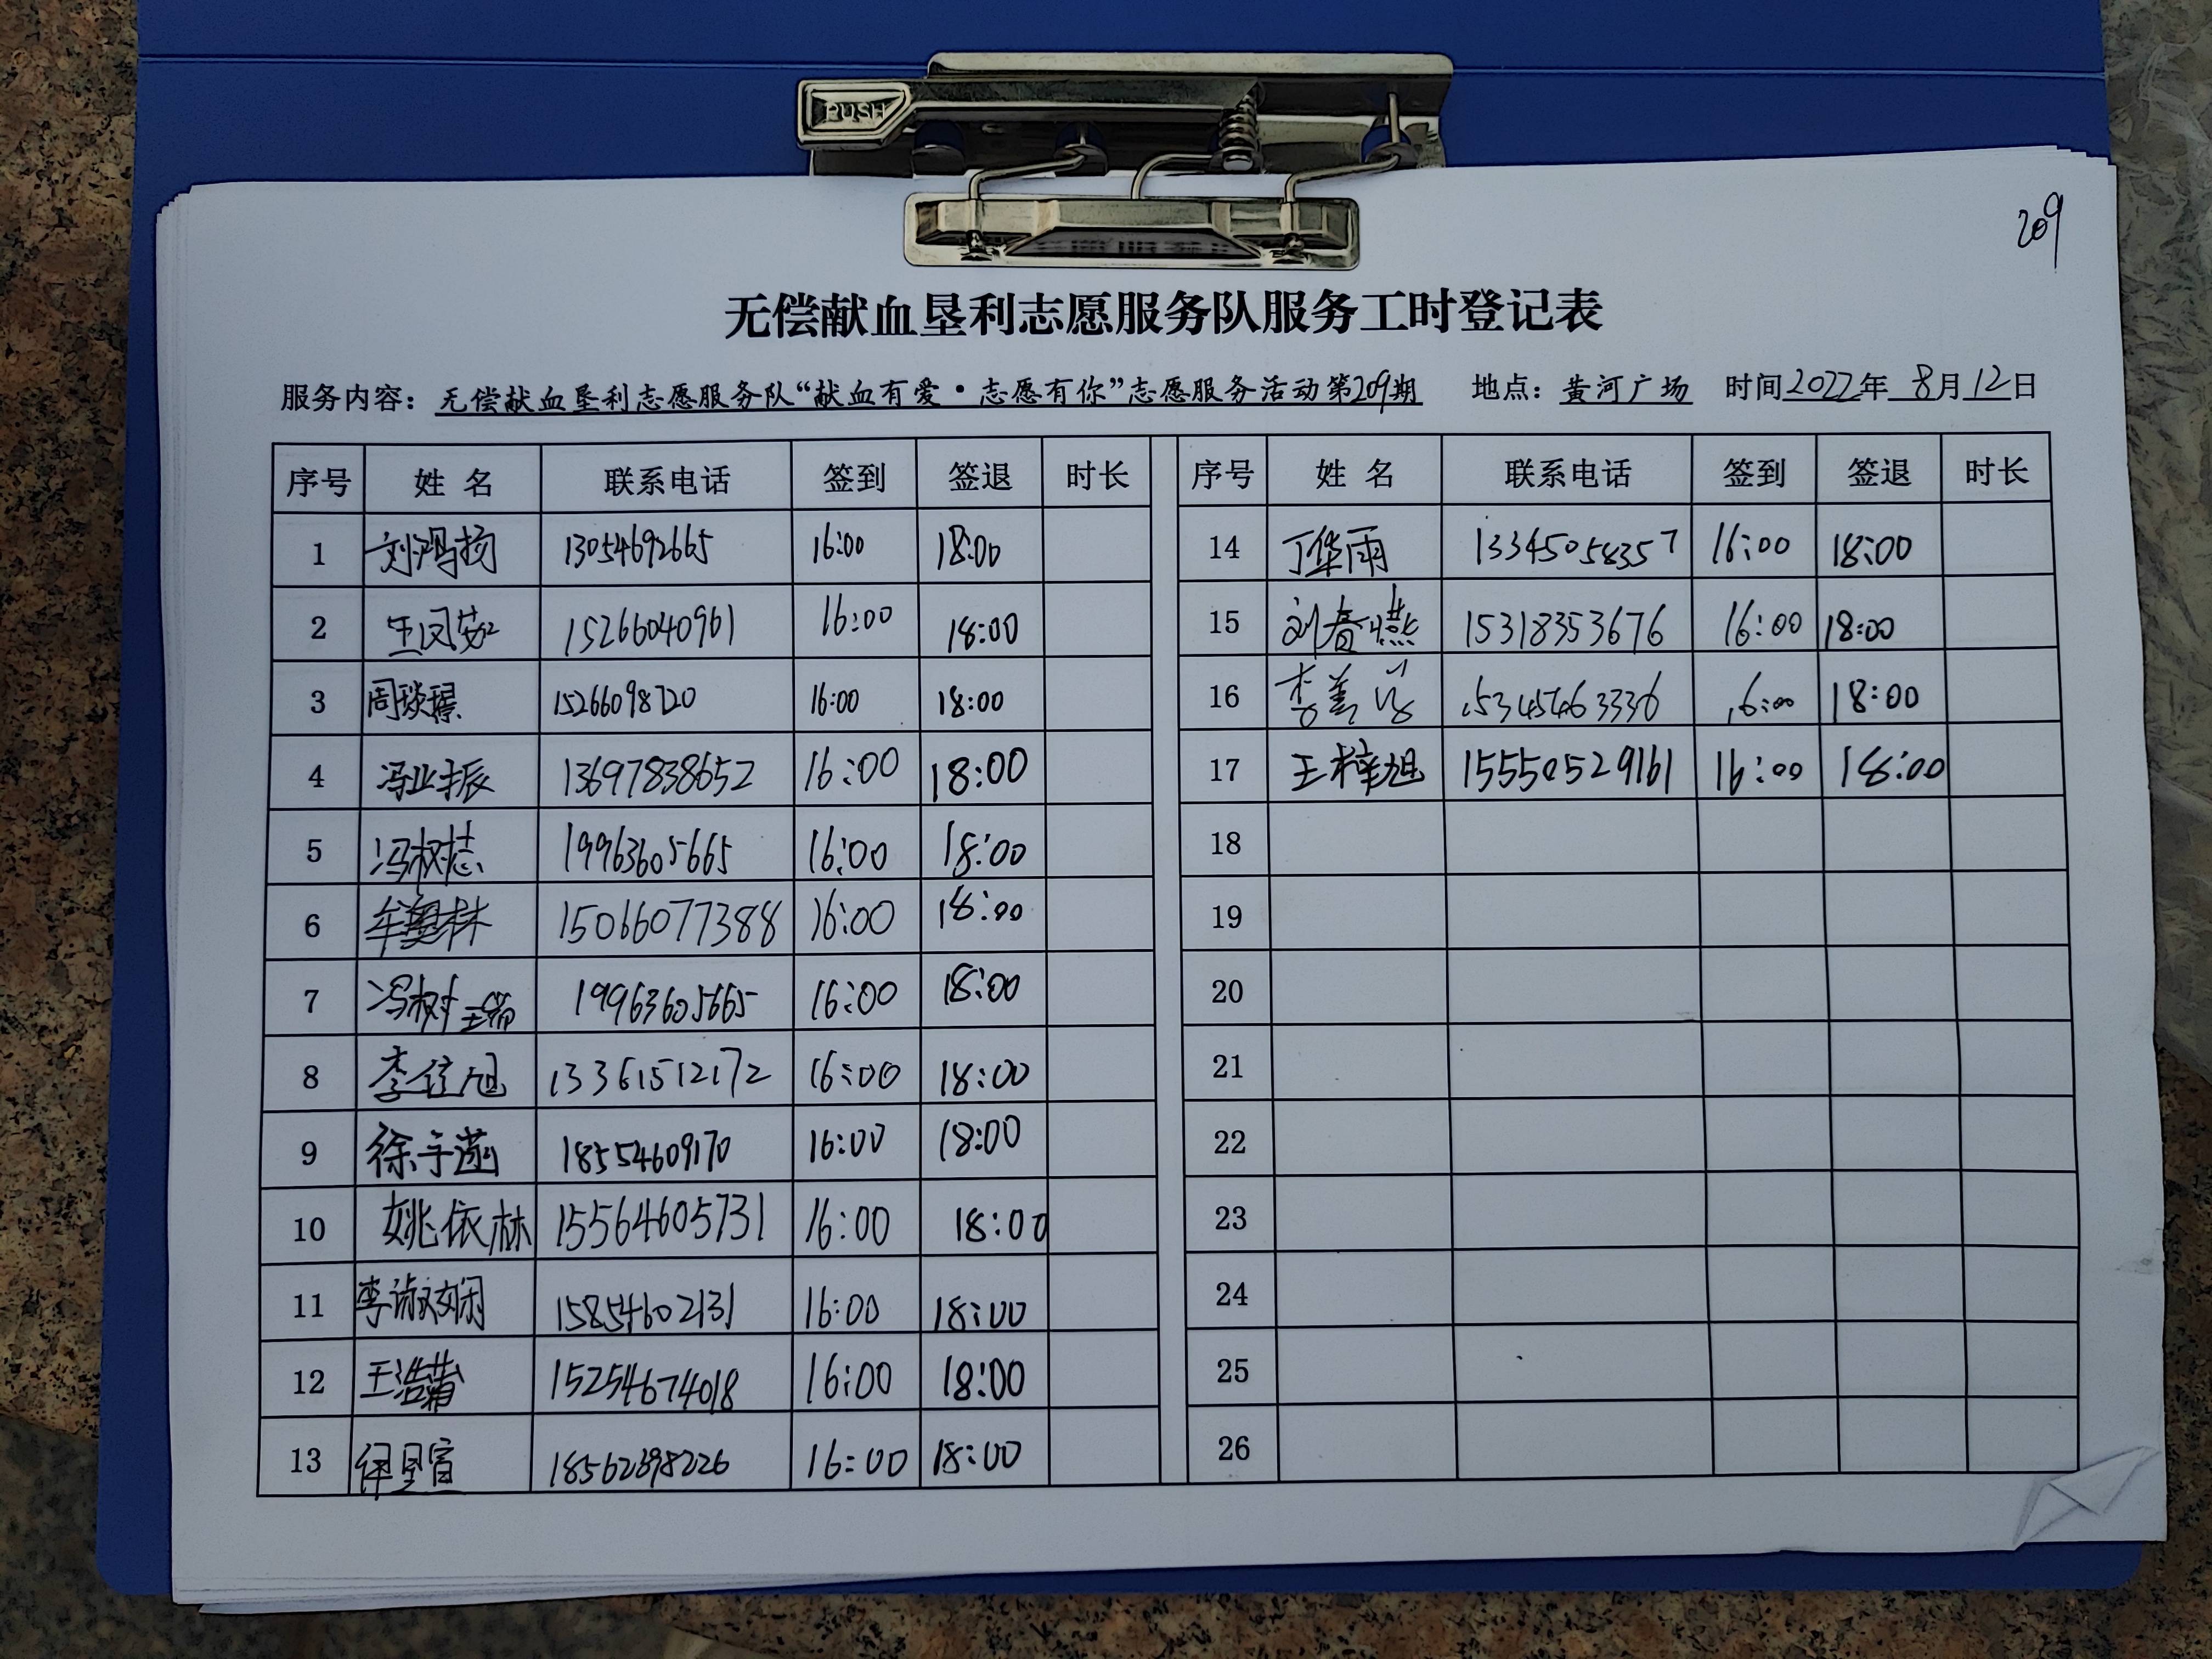 PUSH
209
无偿献血垦利志愿服务队服务工时登记表
服务内容：无偿献血垦利志愿服务队“献血有爱·志愿有你”志愿服务活动第209期 地点：黄河广场 时间2022年 8月12日
序号 姓名 联系电话 签到 签退 时长 序号 姓名 联系电话 签到 签退 时长
1 刘鸿扬 13054692665 16:00 18:00 14 丁华雨 13345058357 16:00 18:00
2 王凤茹 15266040961 16:00 18:00 15 刘春燕 15318353676 16:00 18:00
3 周琰璟 15266098720 16:00 18:00 16 李善 15345463336 16:00 18:00
4 冯业振 13697838652 16:00 18:00 17 王梓旭 15550529161 16:00 18:00
5 冯树志 19963605665 16:00 18:00 18
6 牟奥林 15066077388 16:00 18:00 19
7 冯树瑞 19963605665 16:00 18:00 20
8 李佳旭 13361512172 16:00 18:00 21
9 徐子涵 18554609170 16:00 18:00 22
10 姚依林 15564605731 16:00 18:00 23
11 李淑娴 15854602131 16:00 18:00 24
12 王浩 15254674018 16:00 18:00 25
13 16:00 18:00 26